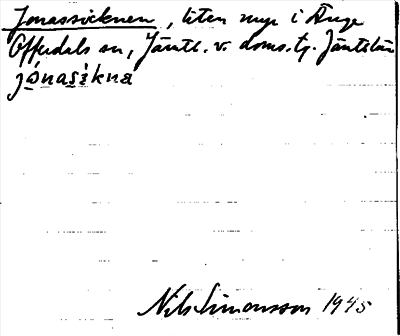 Jonassicknen, liten myr i Änge
Offerdals sn, Jämtl. v. doms. tg. Jämtlän
jónasìkna
Nils Simonsson 1945